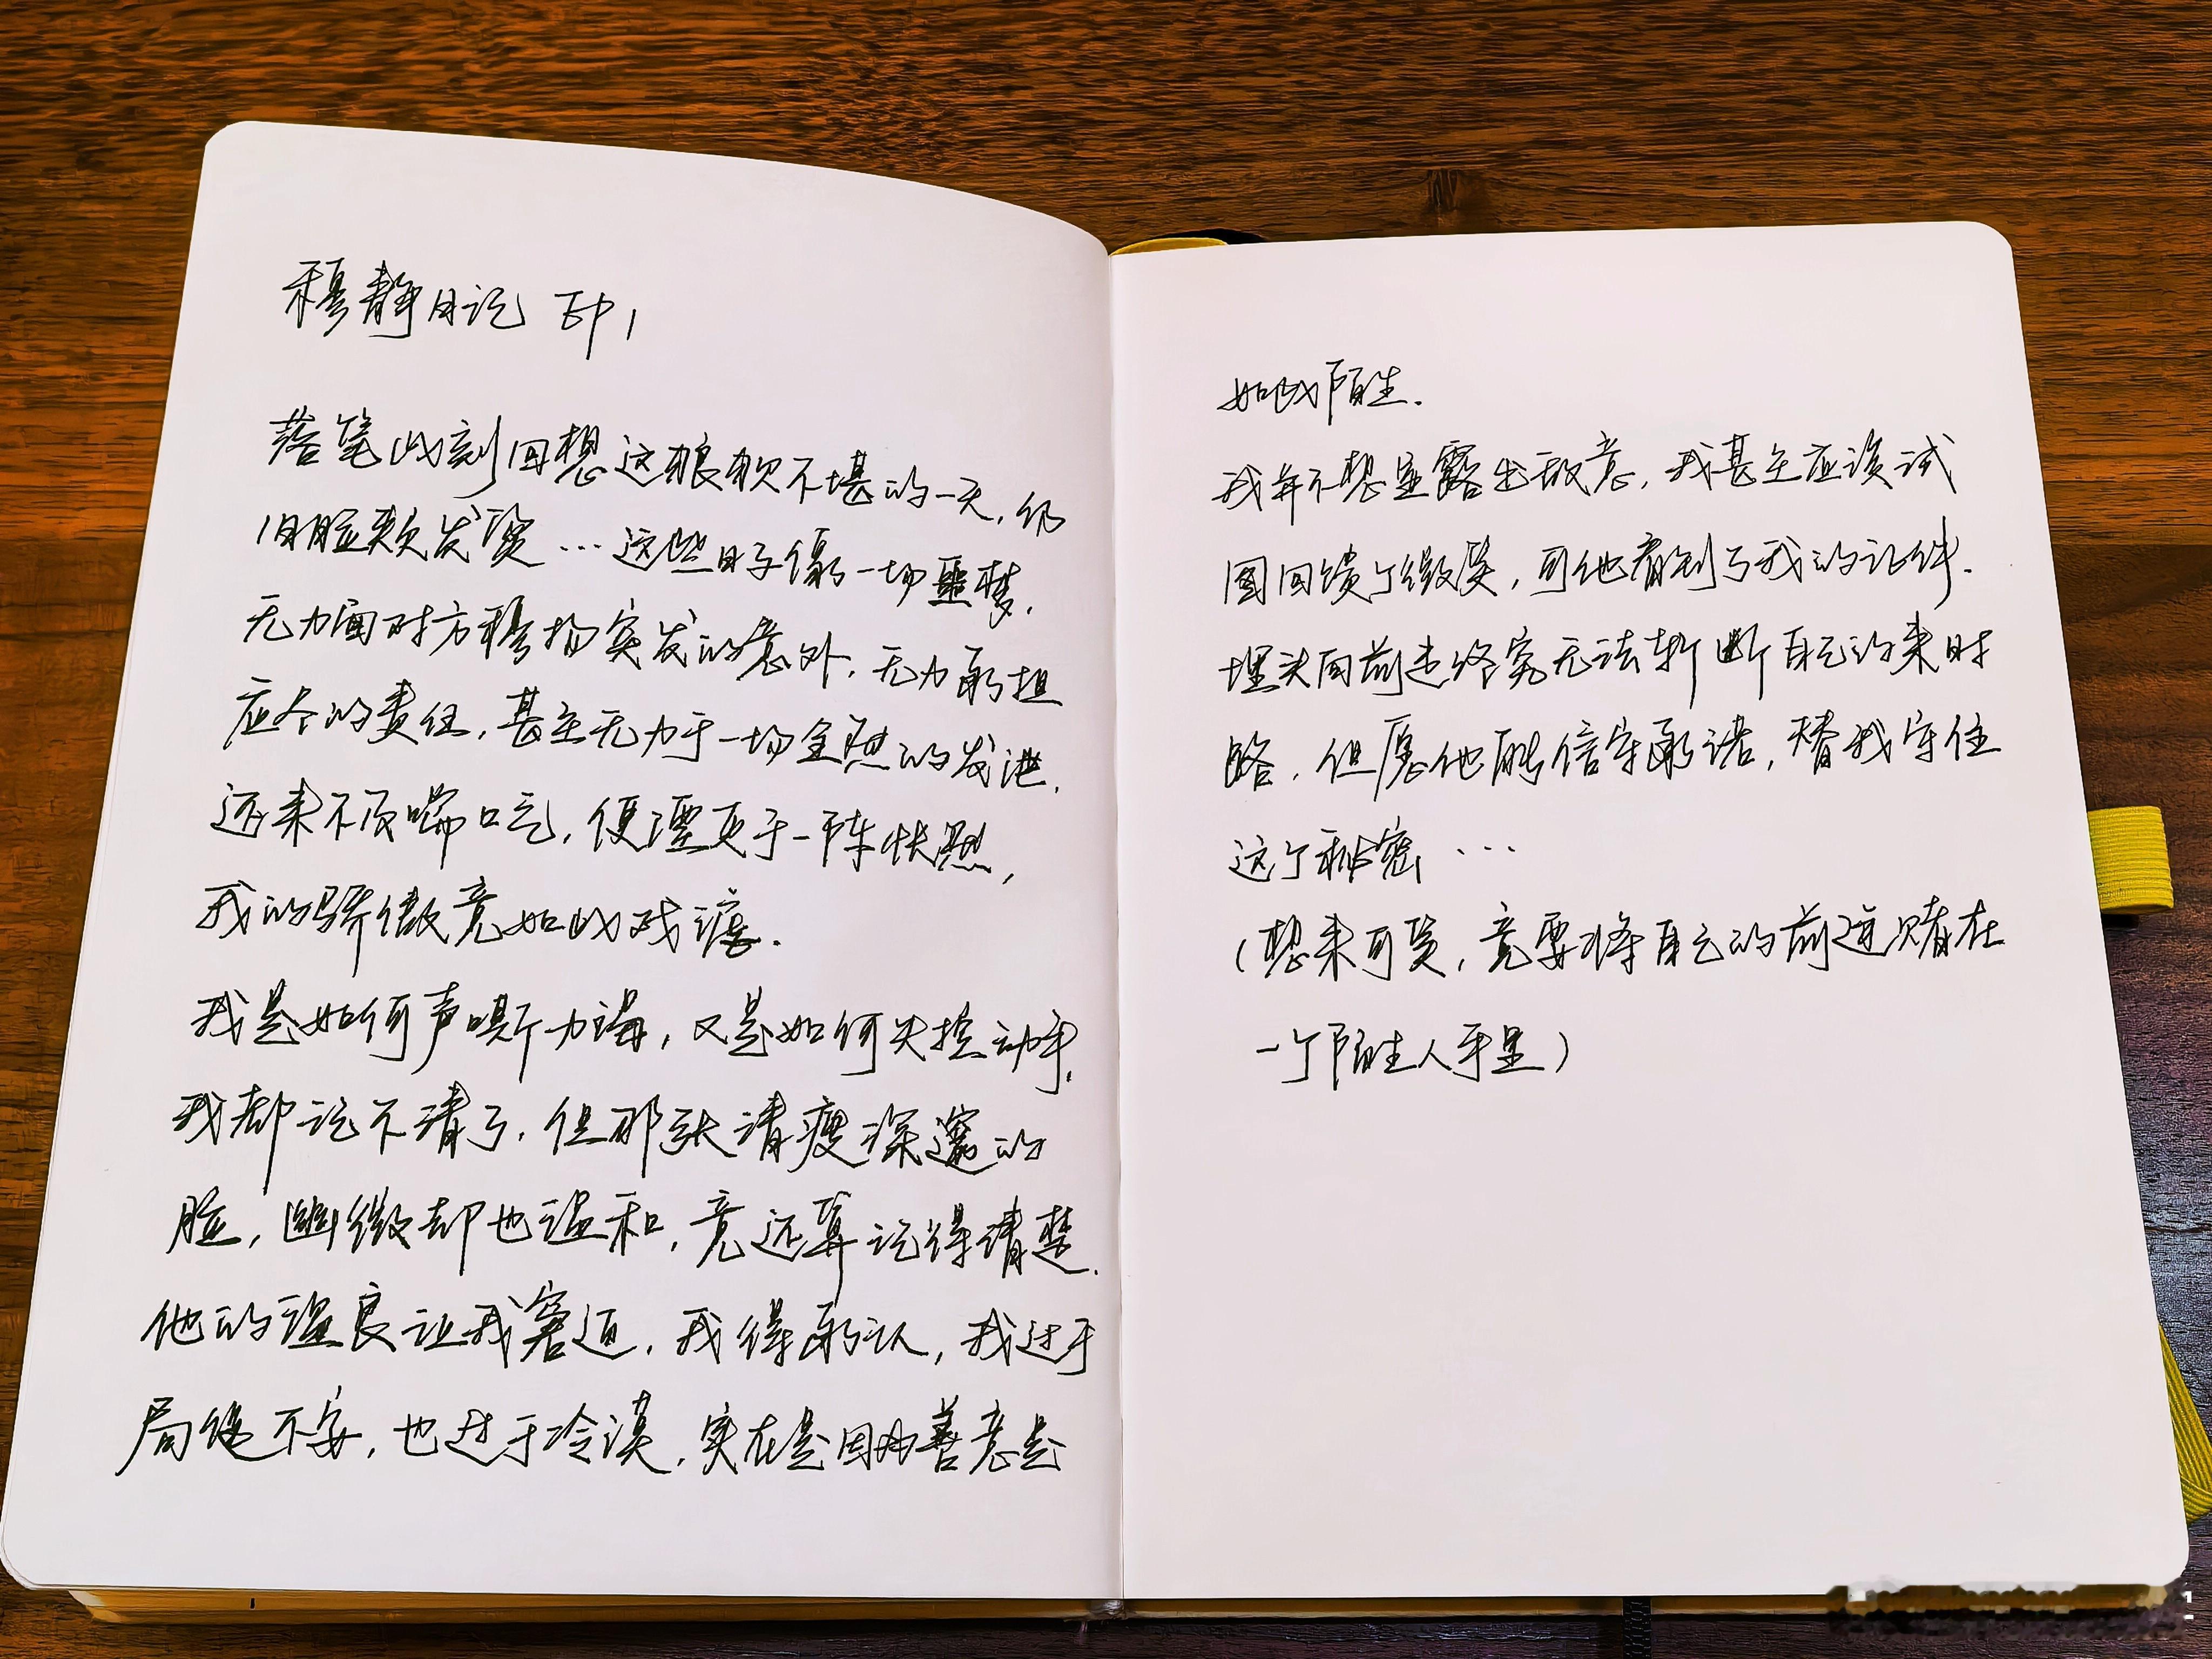 穆静日记 EP1
落笔此刻回想这狼狈不堪的一天，仍
旧脸颊发烫…这些日子像一场噩梦，
无力面对方穆扬突发的意外，无力承担
应尽的责任，甚至无力于一场坦然的发泄，
还来不及喘口气，便湮灭于一阵怅然，
我的骄傲竟如此戏谑。
我是如何声嘶力竭，又是如何失控动手，
我都记不清了，但那张清瘦深邃的
脸，幽微却也温和，竟还算记得清楚。
他的温良让我窘迫，我得承认，我过于
局促不安，也过于冷漠，实在是因为善意是
如此陌生。
我并不想显露出敌意，我甚至应该试
图回馈个微笑，可他看到了我的证件。
埋头向前走终究无法斩断自己的来时
路，但愿他能信守承诺，替我守住
这个秘密…
（想来可笑，竟要将自己的前途赌在
一个陌生人手里）